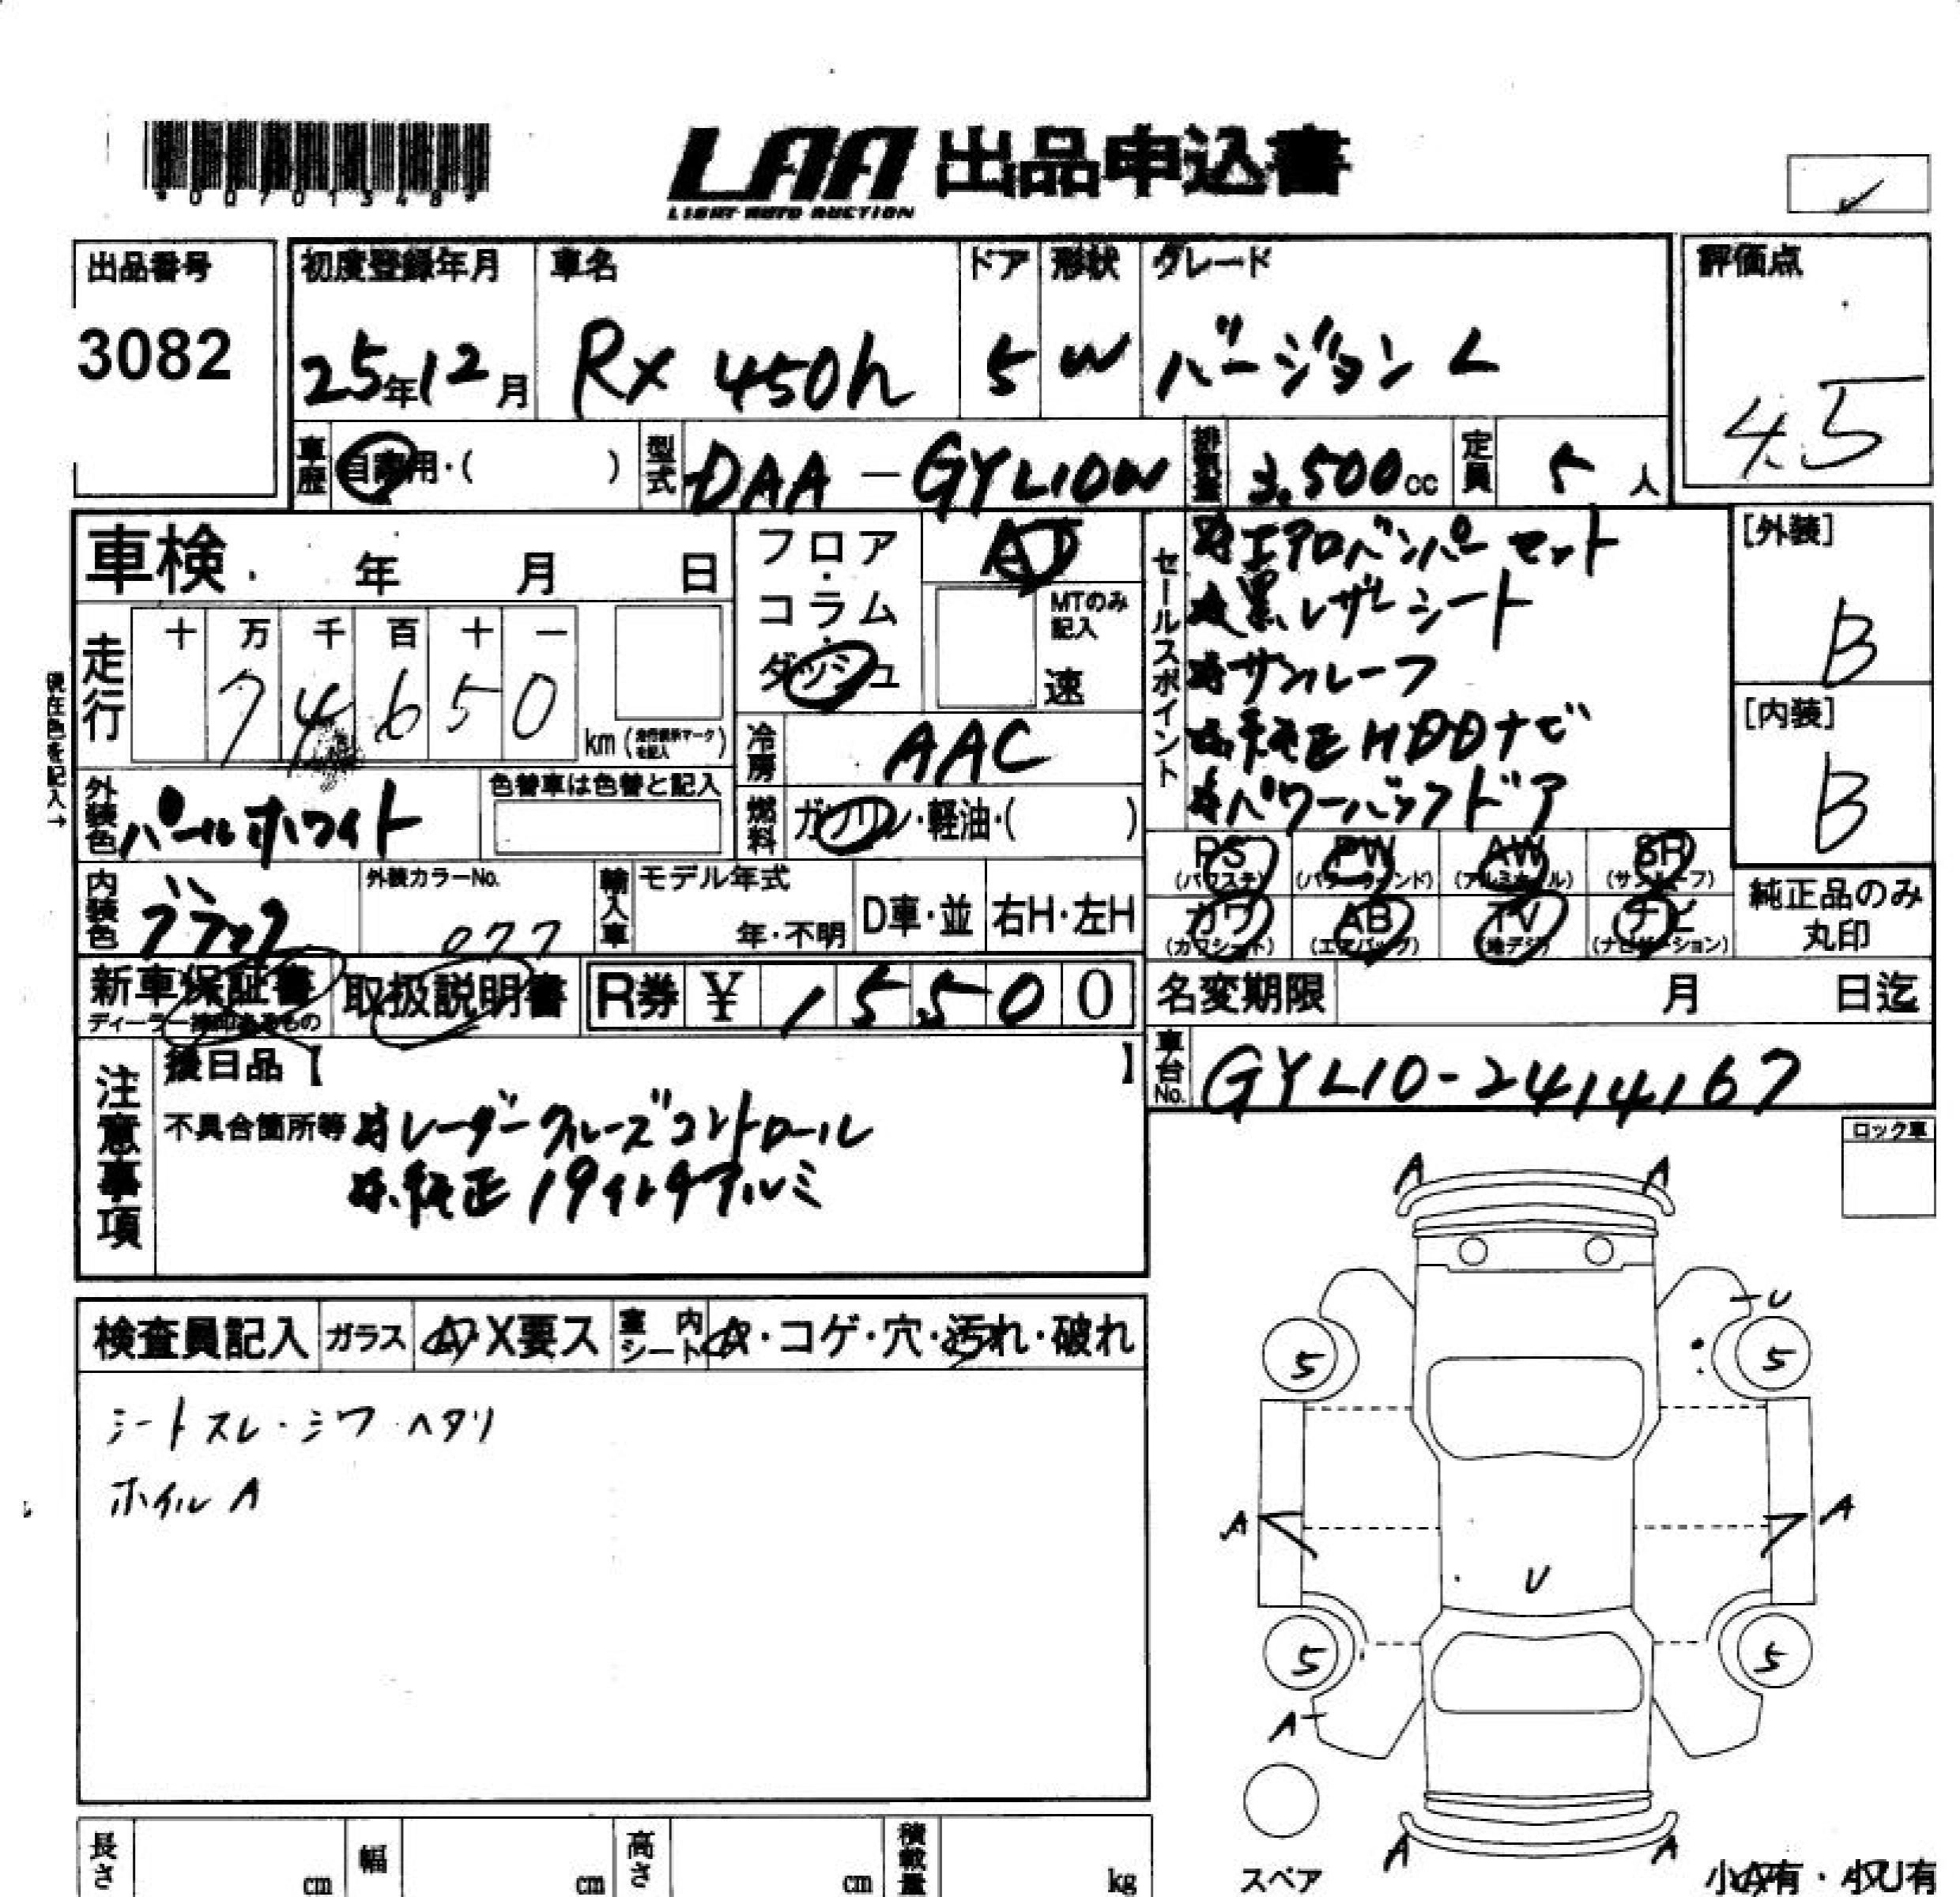 *00701348*
LAA 出品申込書
LIGHT AUTO AUCTION
出品番号
3082
初度登録年月
25年12月
車名
RX 450h
ドア
5
形状
W
グレード
バージョン L
評価点
4.5
車歴
自家用・( )
型式
DAA-GYL10W
排気量
3.500cc
定員
5人
車検 年 月 日
走行
十 万 千 百 十 一
7 4 6 5 0
km
現在色を記入→
フロア・コラム・ダッシュ
AT
MTのみ記入
速
冷房
AAC
燃料
ガソリン・軽油・( )
セールスポイント
エアロバンパーセット
黒レザーシート
サンルーフ
純正HDDナビ
パワーバックドア
[外装]
B
[内装]
B
外装色
パールホワイト
色替車は色替と記入
内装色
ブラック
外装カラーNo.
077
輸入車
モデル年式
年・不明
D車・並
右H・左H
PS
(パワステ)
PW
(パワーウインド)
AW
(アルミホイール)
SR
(サンルーフ)
カワ
(カワシート)
AB
(エアバッグ)
TV
(地デジ)
ナビ
(ナビゲーション)
純正品のみ
丸印
新車保証書
取扱説明書
R券 ¥ 15500
名変期限 月 日迄
車台No.
GYL10-2414167
注意事項
後日品【 】
不具合箇所等
レーダークルーズコントロール
純正19インチアルミ
ロック車
検査員記入
ガラス
A・X要ス
室内シート
A・コゲ・穴・汚れ・破れ
シートスレ・シワ・ヘタリ
ホイルA
A A
U
5 5
A A
U
5 5
A
A A
スペア
小A有・小U有
長さ cm
幅 cm
高さ cm
積載量 kg